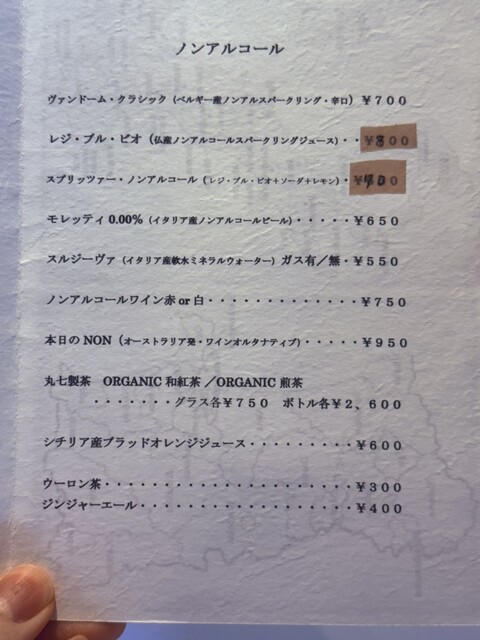 ノンアルコール
ヴァンドーム・クラシック（ベルギー産ノンアルスパークリング・辛口）￥７００
レジ・ブル・ビオ（仏産ノンアルコールスパークリングジュース）・・￥８００
スプリッツァー・ノンアルコール（レジ・ブル・ビオ＋ソーダ＋レモン）・
モレッティ 0.00%（イタリア産ノンアルコールビール）・・・・・￥６５０
スルジーヴァ（イタリア産軟水ミネラルウォーター）ガス有／無・￥５５０
ノンアルコールワイン赤 or 白・・・・・・・・・・・・・￥７５０
本日の NON（オーストラリア発・ワインオルタナティブ）・・・・・￥９５０
丸七製茶　ORGANIC 和紅茶 ／ORGANIC 煎茶
・・・・・・・グラス各￥７５０　ボトル各￥２、６００
シチリア産ブラッドオレンジジュース・・・・・・・・・￥６００
ウーロン茶・・・・・・・・・・・・・・・・・・・・￥３００
ジンジャーエール・・・・・・・・・・・・・・・・・￥４００